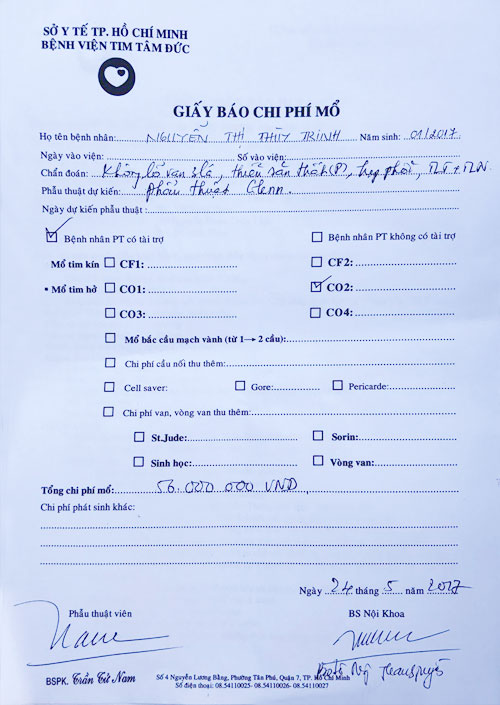 SỞ Y TẾ TP. HỒ CHÍ MINH
BỆNH VIỆN TIM TÂM ĐỨC
GIẤY BÁO CHI PHÍ MỔ
Họ tên bệnh nhân: NGUYỄN THỊ THÙY TRINH Năm sinh: 01/2017
Ngày vào viện: Số vào viện:
Chẩn đoán: Không lỗ van 3 lá, thiểu sản thất (P), hẹp phổi, TLT + TLN
Phẫu thuật dự kiến: phẫu thuật Glenn.
Ngày dự kiến phẫu thuật:
Bệnh nhân PT có tài trợ Bệnh nhân PT không có tài trợ
Mổ tim kín CF1: CF2:
• Mổ tim hở CO1: CO2:
CO3: CO4:
Mổ bắc cầu mạch vành (từ 1→ 2 cầu):
Chi phí cầu nối thu thêm:
Cell saver: Gore: Pericarde:
Chi phí van, vòng van thu thêm:
St.Jude: Sorin:
Sinh học: Vòng van:
Tổng chi phí mổ: 56.000 000 VND
Chi phí phát sinh khác:
Ngày 24 tháng 5 năm 2017
Phẫu thuật viên BS Nội Khoa
BSPK. Trần Tử Nam
Số 4 Nguyễn Lương Bằng, Phường Tân Phú, Quận 7, TP. Hồ Chí Minh
Số điện thoại: 08.54110025- 08.54110026- 08.54110027